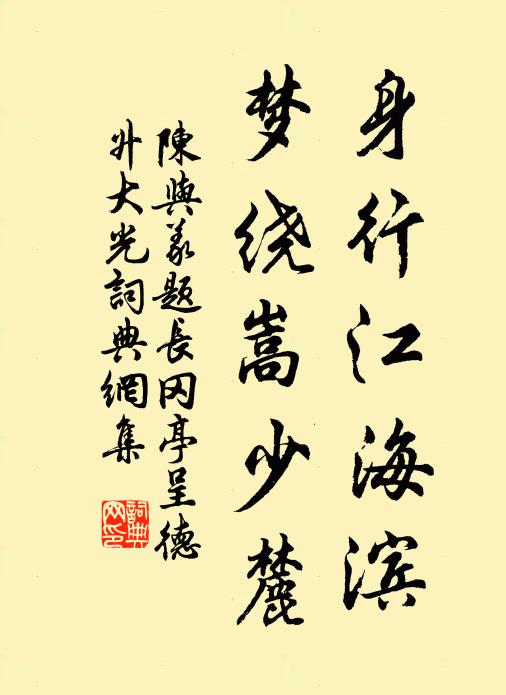 身行江海滨
梦绕嵩少麓
陳與义题長冈亭呈德
升大光詞典網集
詞典网印